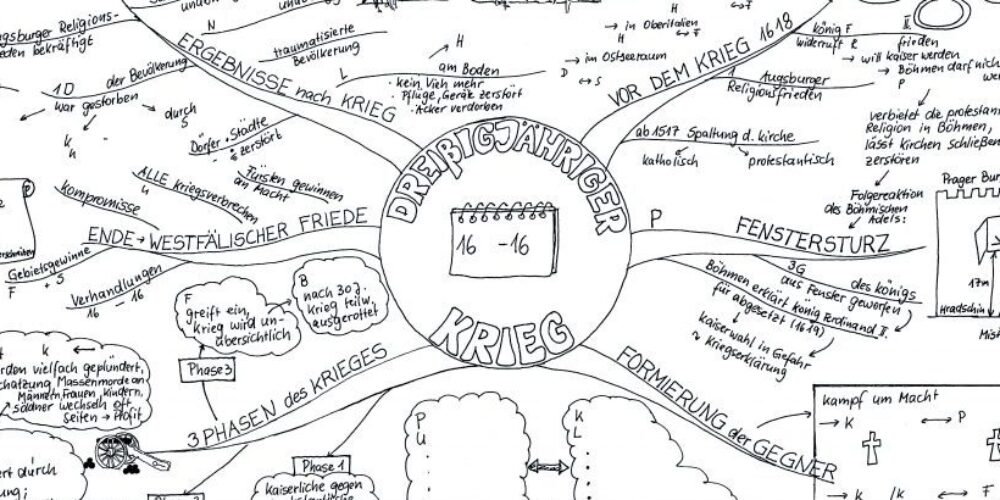 DREIßIGJÄHRIGER
16 -16
KRIEG
ERGEBNISSE nach KRIEG
N
traumatisierte
Bevölkerung
L
H
am Boden
· kein Vieh mehr
· Pflüge, Geräte zerstört
· Acker verdorben
1D der Bevölkerung
war gestorben
durch
S
k
h
Dörfer · Städte
zerstört
ugsburger Religions-
eden bekräftigt
VOR DEM KRIEG 1618
H
→ in Oberitalien
H F
→ im Ostseeraum
D ↔ S
könig F II.
widerruft R frieden
→ will kaiser werden
→ Böhmen darf nich
P
1 Augsburger
Religionsfrieden
ab 1517 Spaltung d. kirche
katholisch
protestantisch
verbietet die protestan
Religion in Böhmen,
lässt Kirchen schließen
zerstören
Folgereaktion
des Böhmischen
Adels:
Prager Bur
17m
Hradschin
Mis
P FENSTERSTURZ
3G des königs
aus Fenster geworfen
Böhmen erklärt König Ferdinand II.
für abgesetzt (1619)
Kaiserwahl in Gefahr
Kriegserklärung
ENDE → WESTFÄLISCHER FRIEDE
kompromisse
ALLE kriegsverbrechen
4
Fürsten gewinnen
an Macht
Gebietsgewinne
F + S
Verhandlungen
16 - 16
3 PHASEN des KRIEGES
Phase 3
F
greift ein,
krieg wird un-
übersichtlich
B
nach 30J.
krieg teilw.
ausgerottet
k ←
rden vielfach geplündert,
chatzung Massenmorde an
Männern, Frauen, Kindern,
söldner wechseln oft
Seiten → Profit
ert durch
ung;
Phase 1
kaiserliche gegen
FORMIERUNG der GEGNER
P
U
K
L
kampf um Macht
→ K ← → P
→ K /k ← → F